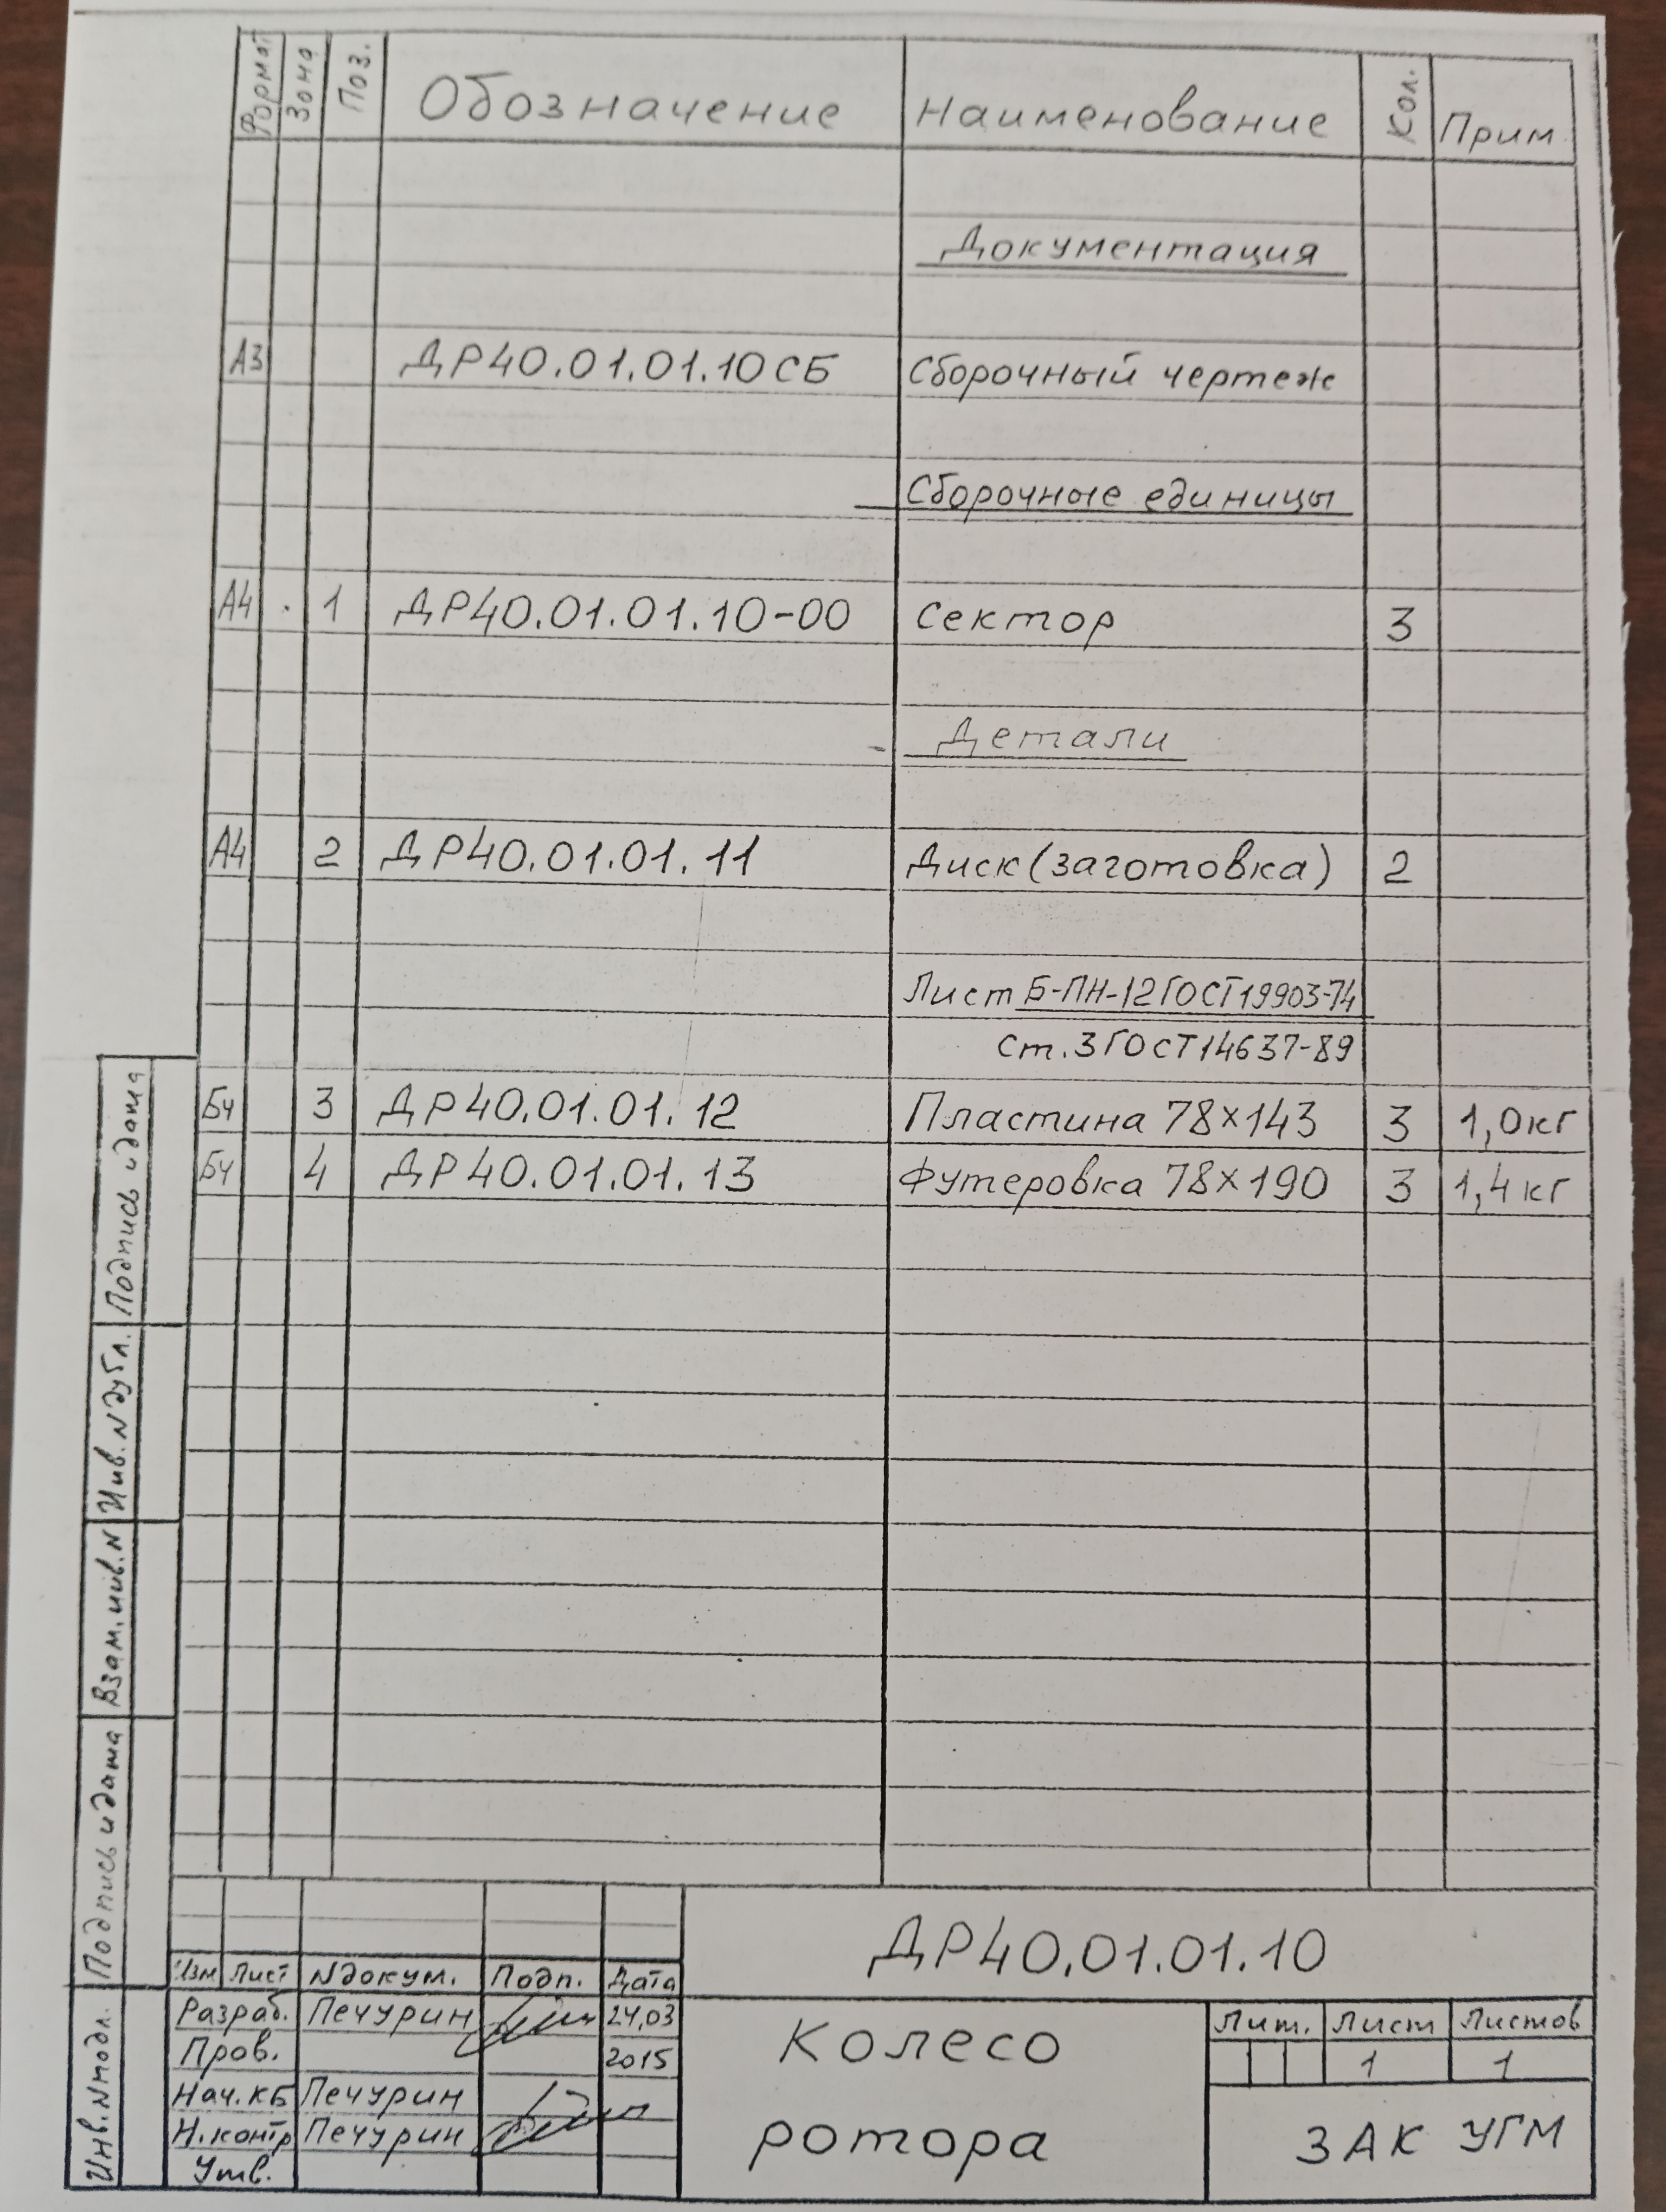 Формат Зона Поз. Обозначение Наименование Кол. Прим.
Документация
А3 ДР40.01.01.10СБ Сборочный чертеж
Сборочные единицы
А4 1 ДР40.01.01.10-00 Сектор 3
Детали
А4 2 ДР40.01.01.11 Диск (заготовка) 2
Лист Б-ПН-12 ГОСТ 19903-74
Ст.3 ГОСТ 14637-89
БЧ 3 ДР40.01.01.12 Пластина 78×143 3 1,0кг
БЧ 4 ДР40.01.01.13 Футеровка 78×190 3 1,4кг
Подпись и дата
Инв. N дубл.
Взам. инв. N
Подпись и дата
Инв. N подл.
ДР40.01.01.10
Изм Лист N докум. Подп. Дата
Разраб. Печурин 24,03
Пров. 2015
Нач. КБ Печурин
Н. контр Печурин
Утв.
Колесо
ротора
Лит. Лист Листов
1 1
ЗАК УГМ